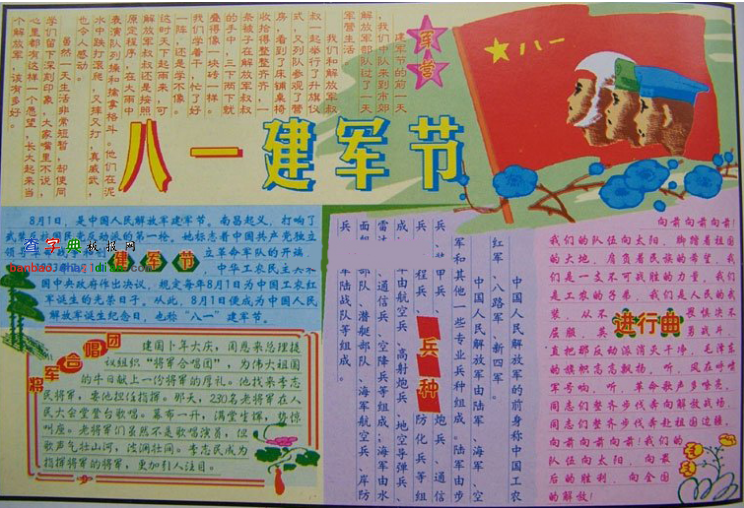 军营
建军节的前一天
，我们中队来到市郊
解放军部队过了一天
军营生活。
我们和解放军叔
叔一起举行了升旗仪
式，又列队参观了营
房，看到了床铺桌椅
收拾得整整齐齐，一
条被子在解放军叔叔
的手中，三下两下就
叠得像一块砖一样。
我们学着干，忙了好
一阵，还是学不像。
这时天下起雨来，可
解放军叔叔还是按照
原定程序，在大雨中
表演队列操和擒拿格斗。他们在泥
水中跌打滚爬，又摔又打，真威武，
也令人感动。
虽然一天生活非常短暂，却使同
学们留下深刻印象，大家嘴里不说，
心里都有这样一个愿望，长大起来当
个解放军，该有多好。
八一
八一建军节
8月1日，是中国人民解放军建军节。南昌起义，打响了
武装反抗国民党反动派的第一枪。她标志着中国共产党独立
领导革命战争和创立革命军队的开端。
建军节
中华工农民主共和
国中央政府作出决议，规定每年8月1日为中国工农红
军诞生的光荣日子。从此，8月1日便成为中国人民
解放军诞生纪念日，也称“八一”建军节。
查字典板报网
banbao.chazidian.com
将军合唱团
建国十年大庆，周恩来总理提
议组织“将军合唱团”，为伟大祖国
的生日献上一份将军的厚礼。他找来李志
民将军，要他担任指挥。那天，230名老将军在人
民大会堂登台歌唱。幕布一开，满堂生辉，惊惊
叫座。老将军们虽然不是歌唱演员，但
歌声气壮山河，波澜壮阔。李志民成为
指挥将军的将军，更加引人注目。
兵种
中国人民解放军的前身称中国工农
红军、八路军、新四军。
中国人民解放军由陆军、海军、空
军和其他一些专业兵种组成。陆军由步
兵、
甲兵、
炮兵、通信
兵、
程兵、
防化兵等组
成，
军由航空兵、高射炮兵、地空导弹兵、
雷达
通信兵、空降兵等组成；海军由水
面舰
部队、潜艇部队、海军航空兵、岸防
军陆战队等组成。
进行曲
向前向前向前!
我们的队伍向太阳，脚踏着祖国
的大地，肩负着民族的希望，我
们是一支不可战胜的力量，我们
是工农的子弟，我们是人民的武
装，从不
畏惧决不
屈服，英
勇战斗，
直把那反动派消灭干净，毛泽东
的旗帜高高飘扬。听，风在呼啸
军号响，听，革命歌声多嘹亮，
同志们整齐步伐奔向解放战场，
同志们整齐步伐奔赴祖国边疆，
向前向前向前！我们的
队伍向太阳，向最
后的胜利，向全国
的解放！